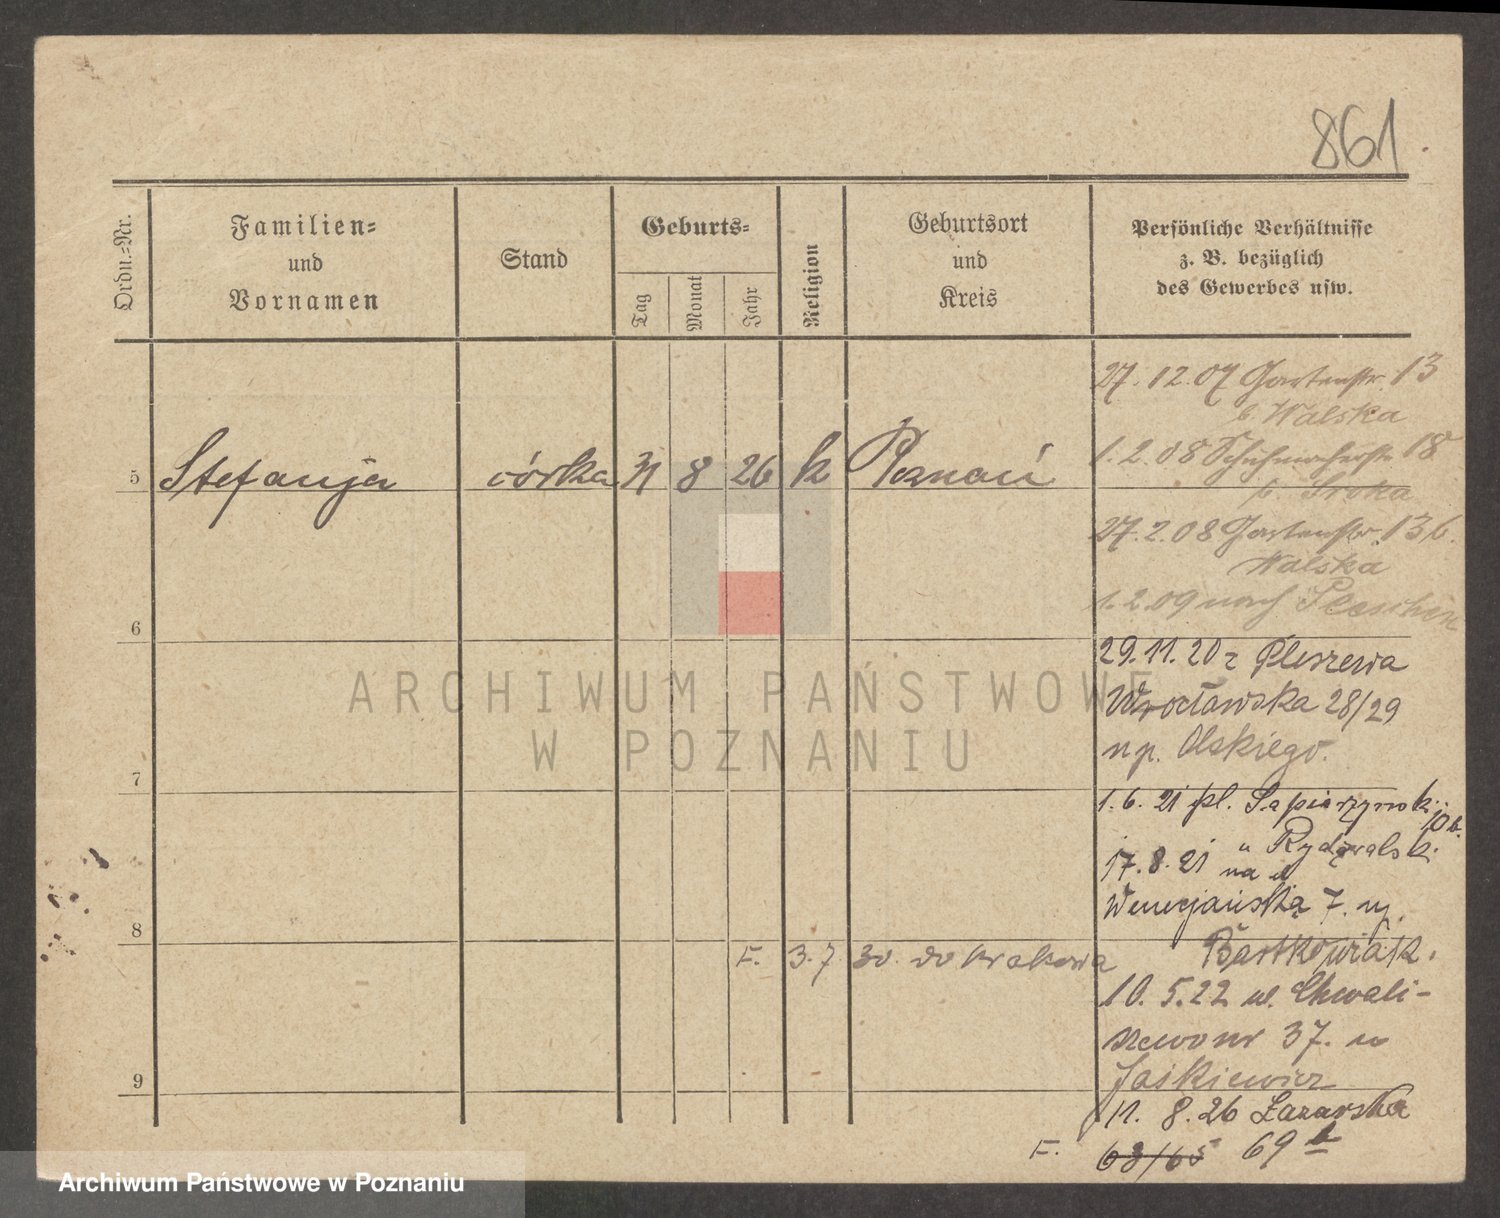 861
Ordn.-Nr.
Familien-
und
Vornamen
Stand
Geburts-
Tag
Monat
Jahr
Religion
Geburtsort
und
Kreis
Persönliche Verhältnisse
z. B. bezüglich
des Gewerbes usw.
27. 12. 07 Gartenstr. 13
b. Walska
1. 2. 08 Schuhmacherstr. 18
b. Sroka
5 Stefanja córka 31 8 26 k Poznań
27. 2. 08 Gartenstr. 13 b.
Walska
1. 2. 09 nach Pleschen
6
29. 11. 20 z Pleszewa
Wrocławska 28/29
np. Olskiego.
7
1. 6. 21 pl. Sapieżyński
10 b.
u
17. 8. 21 na
Wenecjańską 7.
8
F. 3. 7 30. do Krakowa
Bartkowiak.
10. 5. 22 ul. Chwali-
szewo nr 37. u
Jaśkiewicz
9
11. 8. 26 Łazarska
F. 63/65 69
ARCHIWUM PAŃSTWOWE
W POZNANIU
Archiwum Państwowe w Poznaniu